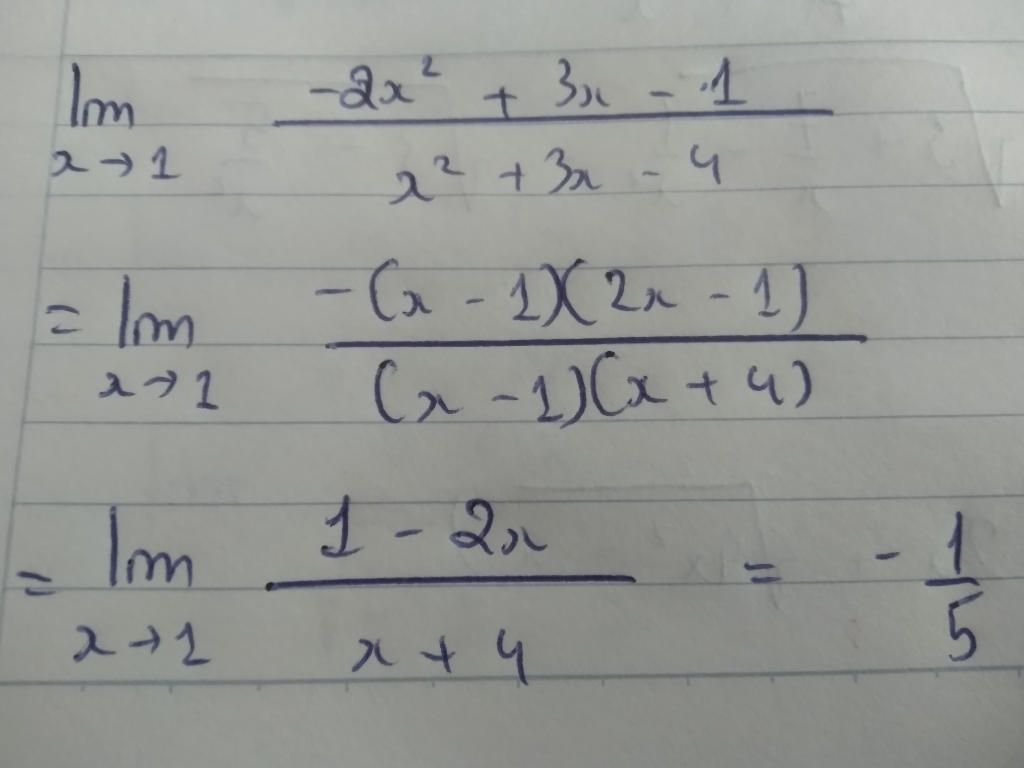 lim x→1 (-2x² + 3x - 1)/(x² + 3x - 4)
= lim x→1 (-(x - 1)(2x - 1))/((x - 1)(x + 4))
= lim x→1 (1 - 2x)/(x + 4) = -1/5